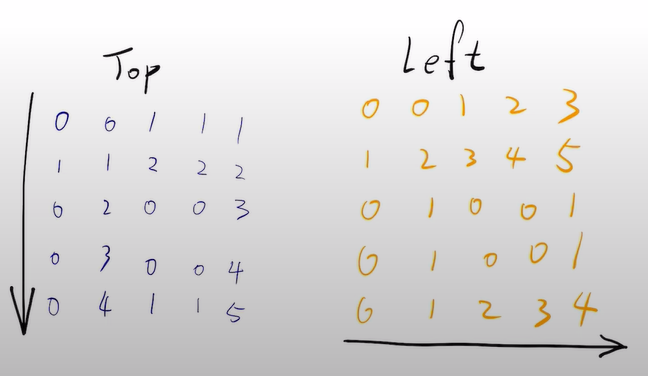 Top
0 0 1 1 1
1 1 2 2 2
0 2 0 0 3
0 3 0 0 4
0 4 1 1 5
Left
0 0 1 2 3
1 2 3 4 5
0 1 0 0 1
0 1 0 0 1
0 1 2 3 4